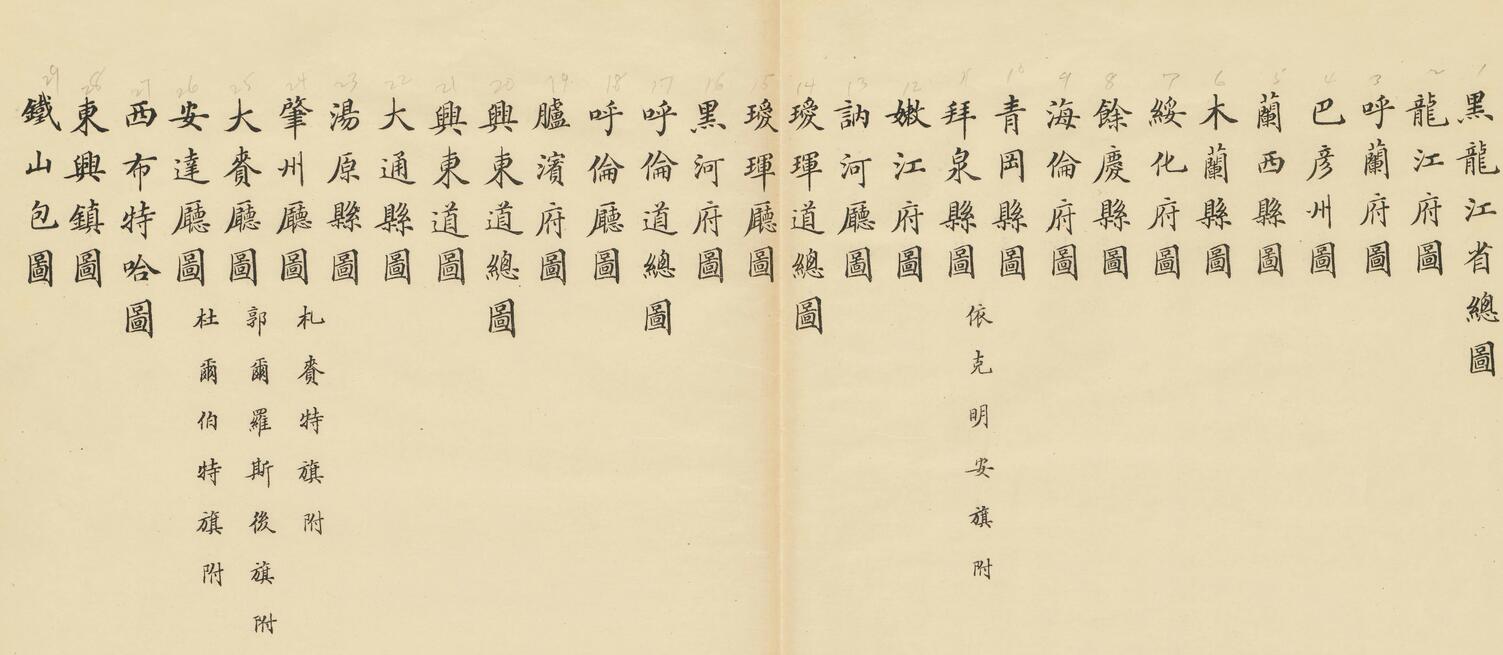 1 黑龍江省總圖
2 龍江府圖
3 呼蘭府圖
4 巴彥州圖
5 蘭西縣圖
6 木蘭縣圖
7 綏化府圖
8 餘慶縣圖
9 海倫府圖
10 青岡縣圖
11 拜泉縣圖 依克明安旗附
12 嫩江府圖
13 訥河廳圖
14 瑷琿道總圖
15 瑷琿廳圖
16 黑河府圖
17 呼倫道總圖
18 呼倫廳圖
19 臚濱府圖
20 興東道總圖
21 興東道圖
22 大通縣圖
23 湯原縣圖
24 肇州廳圖 札賚特旗附
25 大賚廳圖 郭爾羅斯後旗附
26 安達廳圖 杜爾伯特旗附
27 西布特哈圖
28 東興鎮圖
29 鐵山包圖